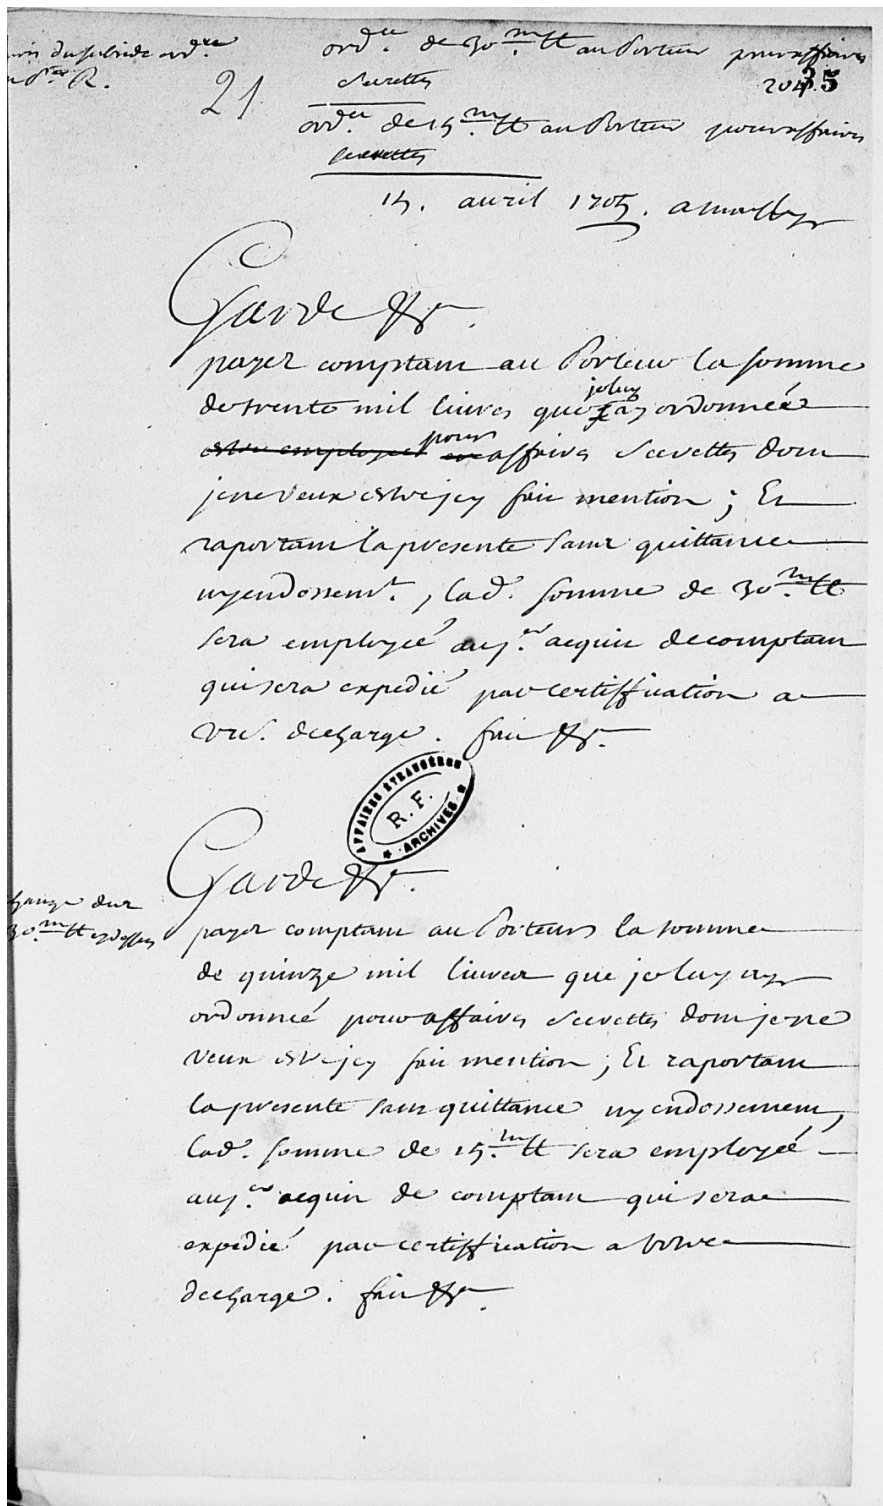 du subside ord.re
R.
21
ord.ce de 30.m ₶ au Porteur pour affaires
secrettes
204.
35
ord.ce de 15.m ₶ au Porteur pour affaires
secrettes
15. avril 1705. a Marly
Garde &c.
payez comptant au Porteur la somme
de trente mil livres que je luy ay ordonnée
estre employée en pour affaires secrettes dont
je ne veux estre jcy fait mention ; Et
raportant la presente sans quittance
ny endossem.t, lad. somme de 30.m ₶
sera employée au p.er acquit de comptant
qui sera expedié par certiffication a
vre. decharge. fait &c.
AFFAIRES ÉTRANGÈRES
R. F.
ARCHIVES
Garde &c.
30.m ₶ cy dessus
payez comptant au Porteur la somme
de quinze mil livres que je luy ay
ordonnée pour affaires secrettes dont je ne
veux estre jcy fait mention ; Et raportant
la presente sans quittance ny endossement,
lad. somme de 15.m ₶ sera employée
au p.er acquit de comptant qui sera
expedié par certiffication a votre
decharge. fait &c.